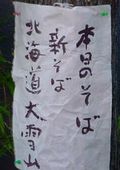 本日のそば
新そば
北海道大雪山